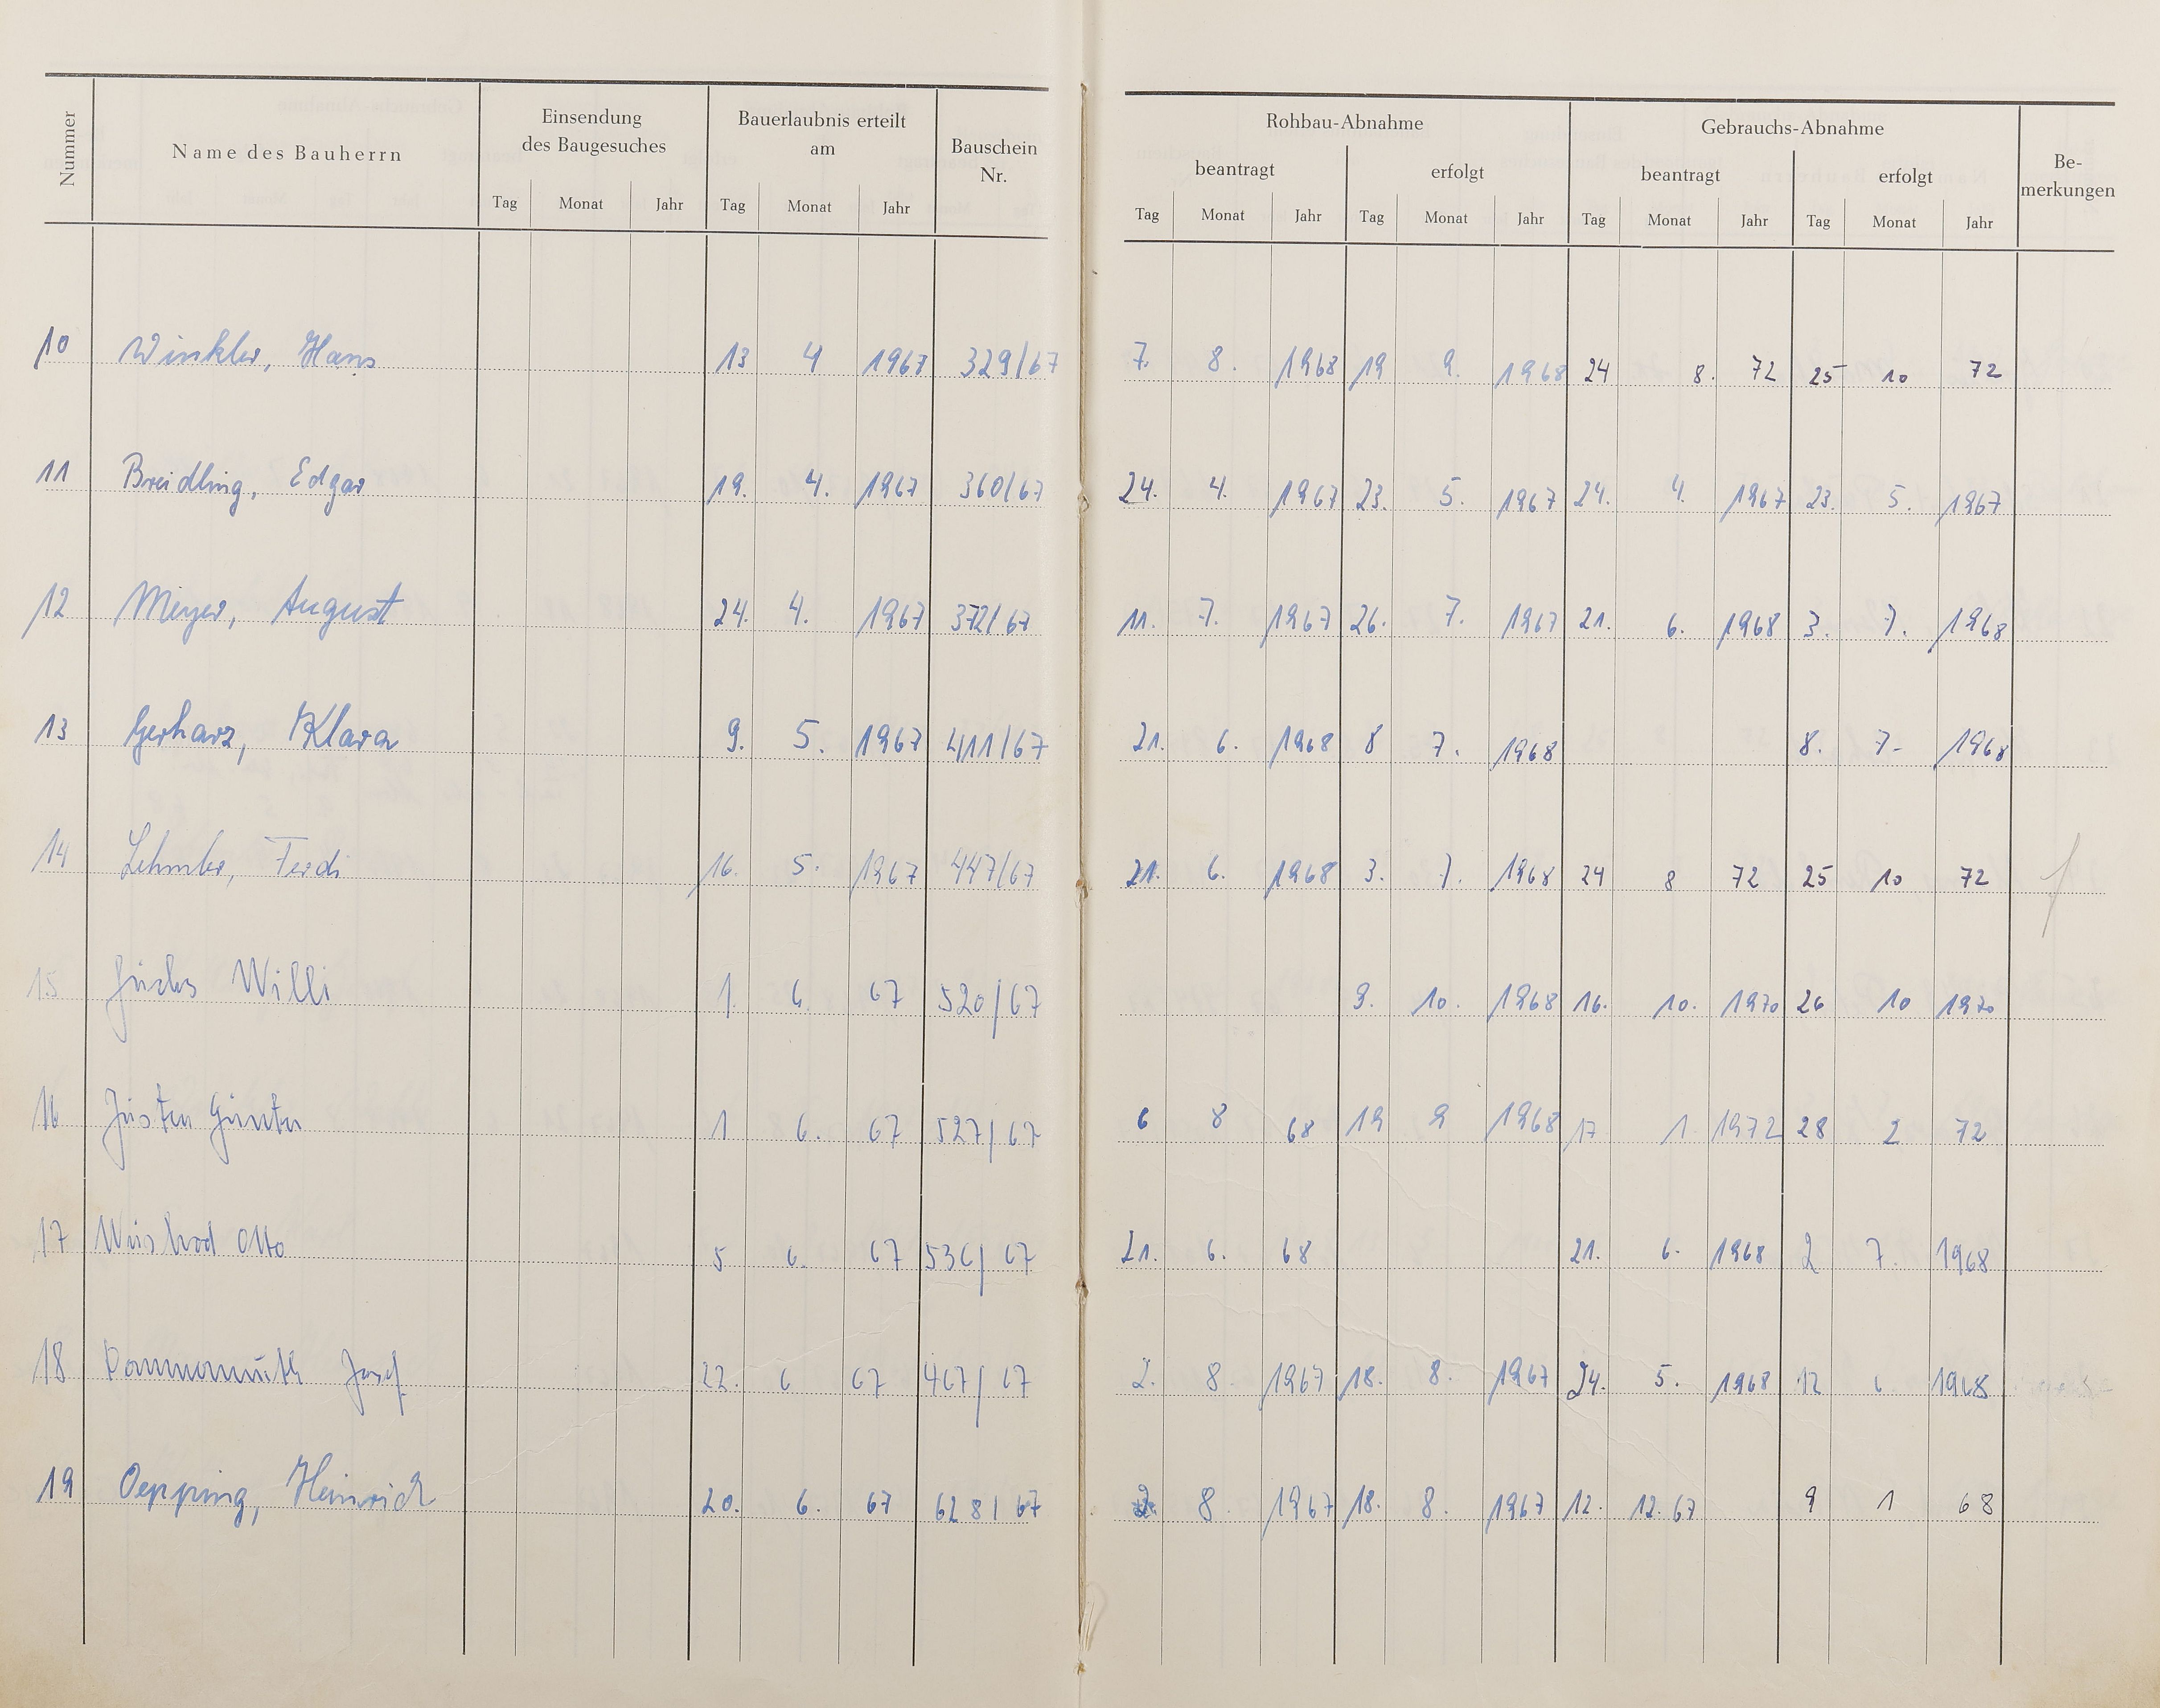 Nummer
Name des Bauherrn
Einsendung
des Baugesuches
Tag Monat Jahr
Bauerlaubnis erteilt
am
Tag Monat Jahr
Bauschein
Nr.
Rohbau-Abnahme
beantragt erfolgt
Tag Monat Jahr Tag Monat Jahr
Gebrauchs-Abnahme
beantragt erfolgt
Tag Monat Jahr Tag Monat Jahr
Be-
merkungen
10 Winkler, Hans 13 4 1967 329/67 7. 8. 1968 19 9. 1968 24 8. 72 25 10 72
11 Breidling, Edgar 19. 4. 1967 360/67 24. 4. 1967 23. 5. 1967 24. 4. 1967 23. 5. 1967
12 Meyer, August 24. 4. 1967 372/67 11. 7. 1967 26. 7. 1967 21. 6. 1968 3. 7. 1968
13 Gerharz, Klara 9. 5. 1967 411/67 21. 6. 1968 8 7. 1968 8. 7. 1968
14 Ferdi 16. 5. 1967 447/67 21. 6. 1968 3. 7. 1968 24 8 72 25 10 72
15 Willi 1. 6 67 520/67 9. 10. 1968 16. 10. 1970 26 10 1970
16 Justen Günter 1 6. 67 527/67 6 8 68 19 9 1968 17 1 1972 28 2 72
17 Otto 5 6. 67 536/67 21. 6. 68 21. 6. 1968 2 7. 1968
18 Josef 22. 6 67 467/67 2. 8 1967 18. 8. 1967 24. 5. 1968 12 6 1968
19 Oepping, Heinrich 20. 6. 67 628/67 2 8. 1967 18. 8. 1967 12. 12. 67 9 1 68